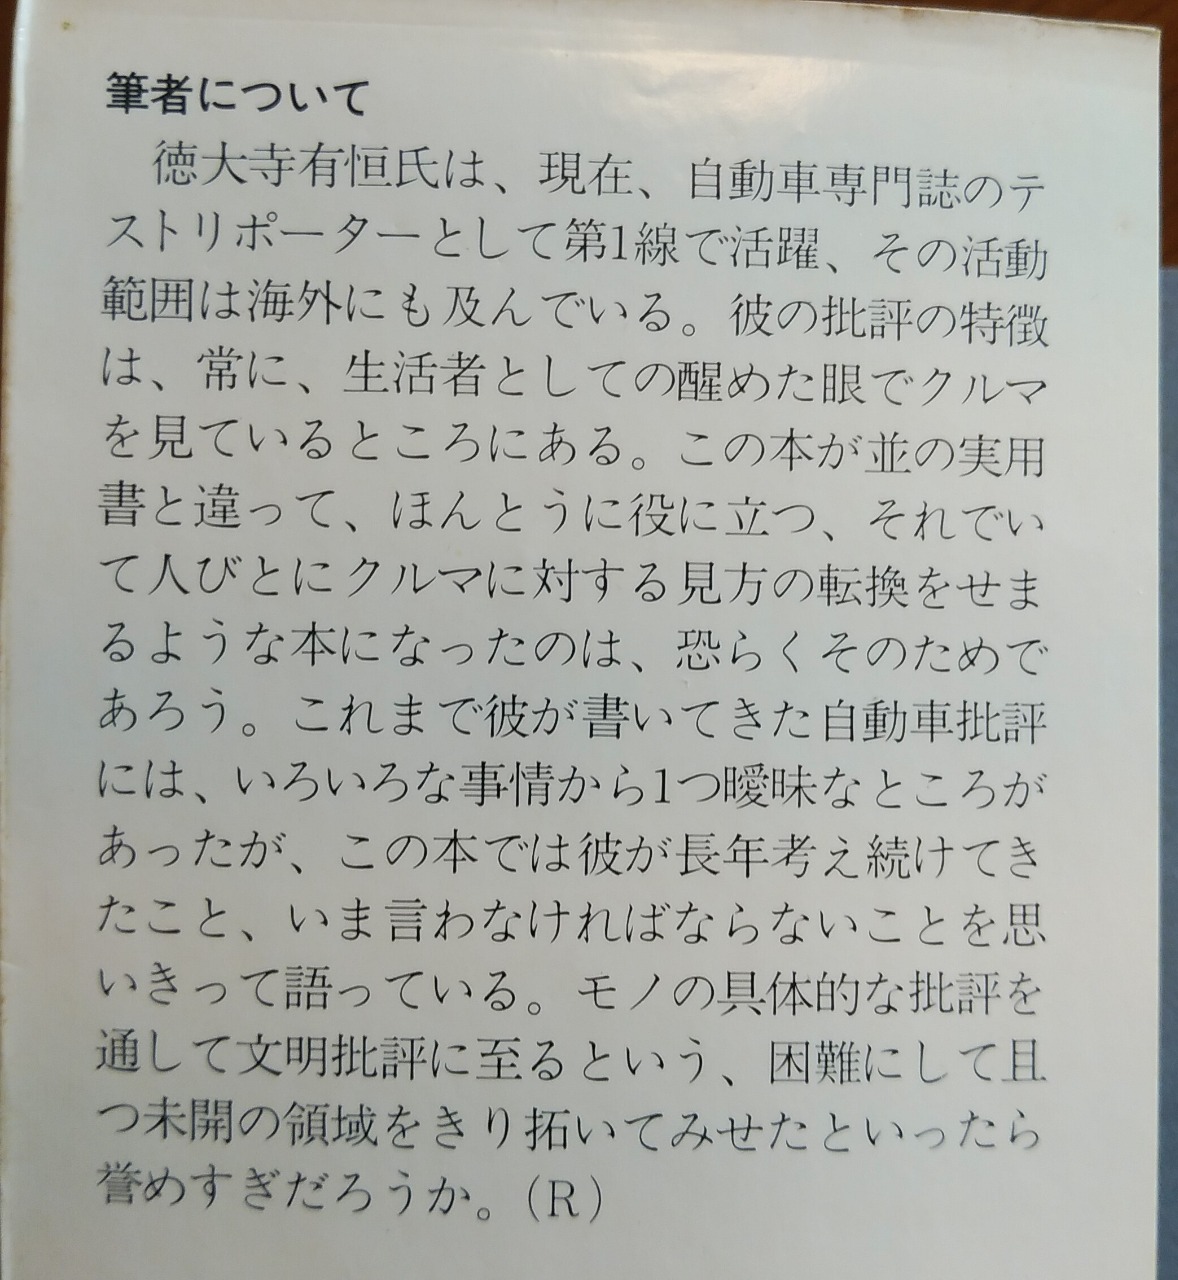 筆者について
徳大寺有恒氏は、現在、自動車専門誌のテ
ストリポーターとして第1線で活躍、その活動
範囲は海外にも及んでいる。彼の批評の特徴
は、常に、生活者としての醒めた眼でクルマ
を見ているところにある。この本が並の実用
書と違って、ほんとうに役に立つ、それでい
て人びとにクルマに対する見方の転換をせま
るような本になったのは、恐らくそのためで
あろう。これまで彼が書いてきた自動車批評
には、いろいろな事情から1つ曖昧なところが
あったが、この本では彼が長年考え続けてき
たこと、いま言わなければならないことを思
いきって語っている。モノの具体的な批評を
通して文明批評に至るという、困難にして且
つ未開の領域をきり拓いてみせたといったら
誉めすぎだろうか。(R)